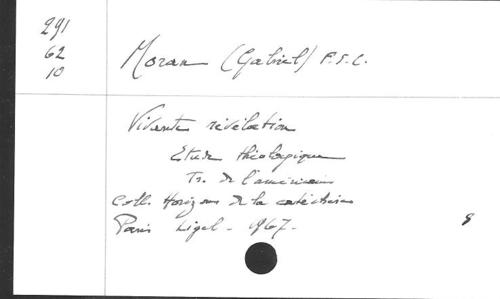 291
62
10
Moran (Gabriel) F.S.C.
Vivante révélation
Etude théologique
Tr. de l'américain
Coll. Horizons de la catéchèse
Paris Ligel - 1967.
8